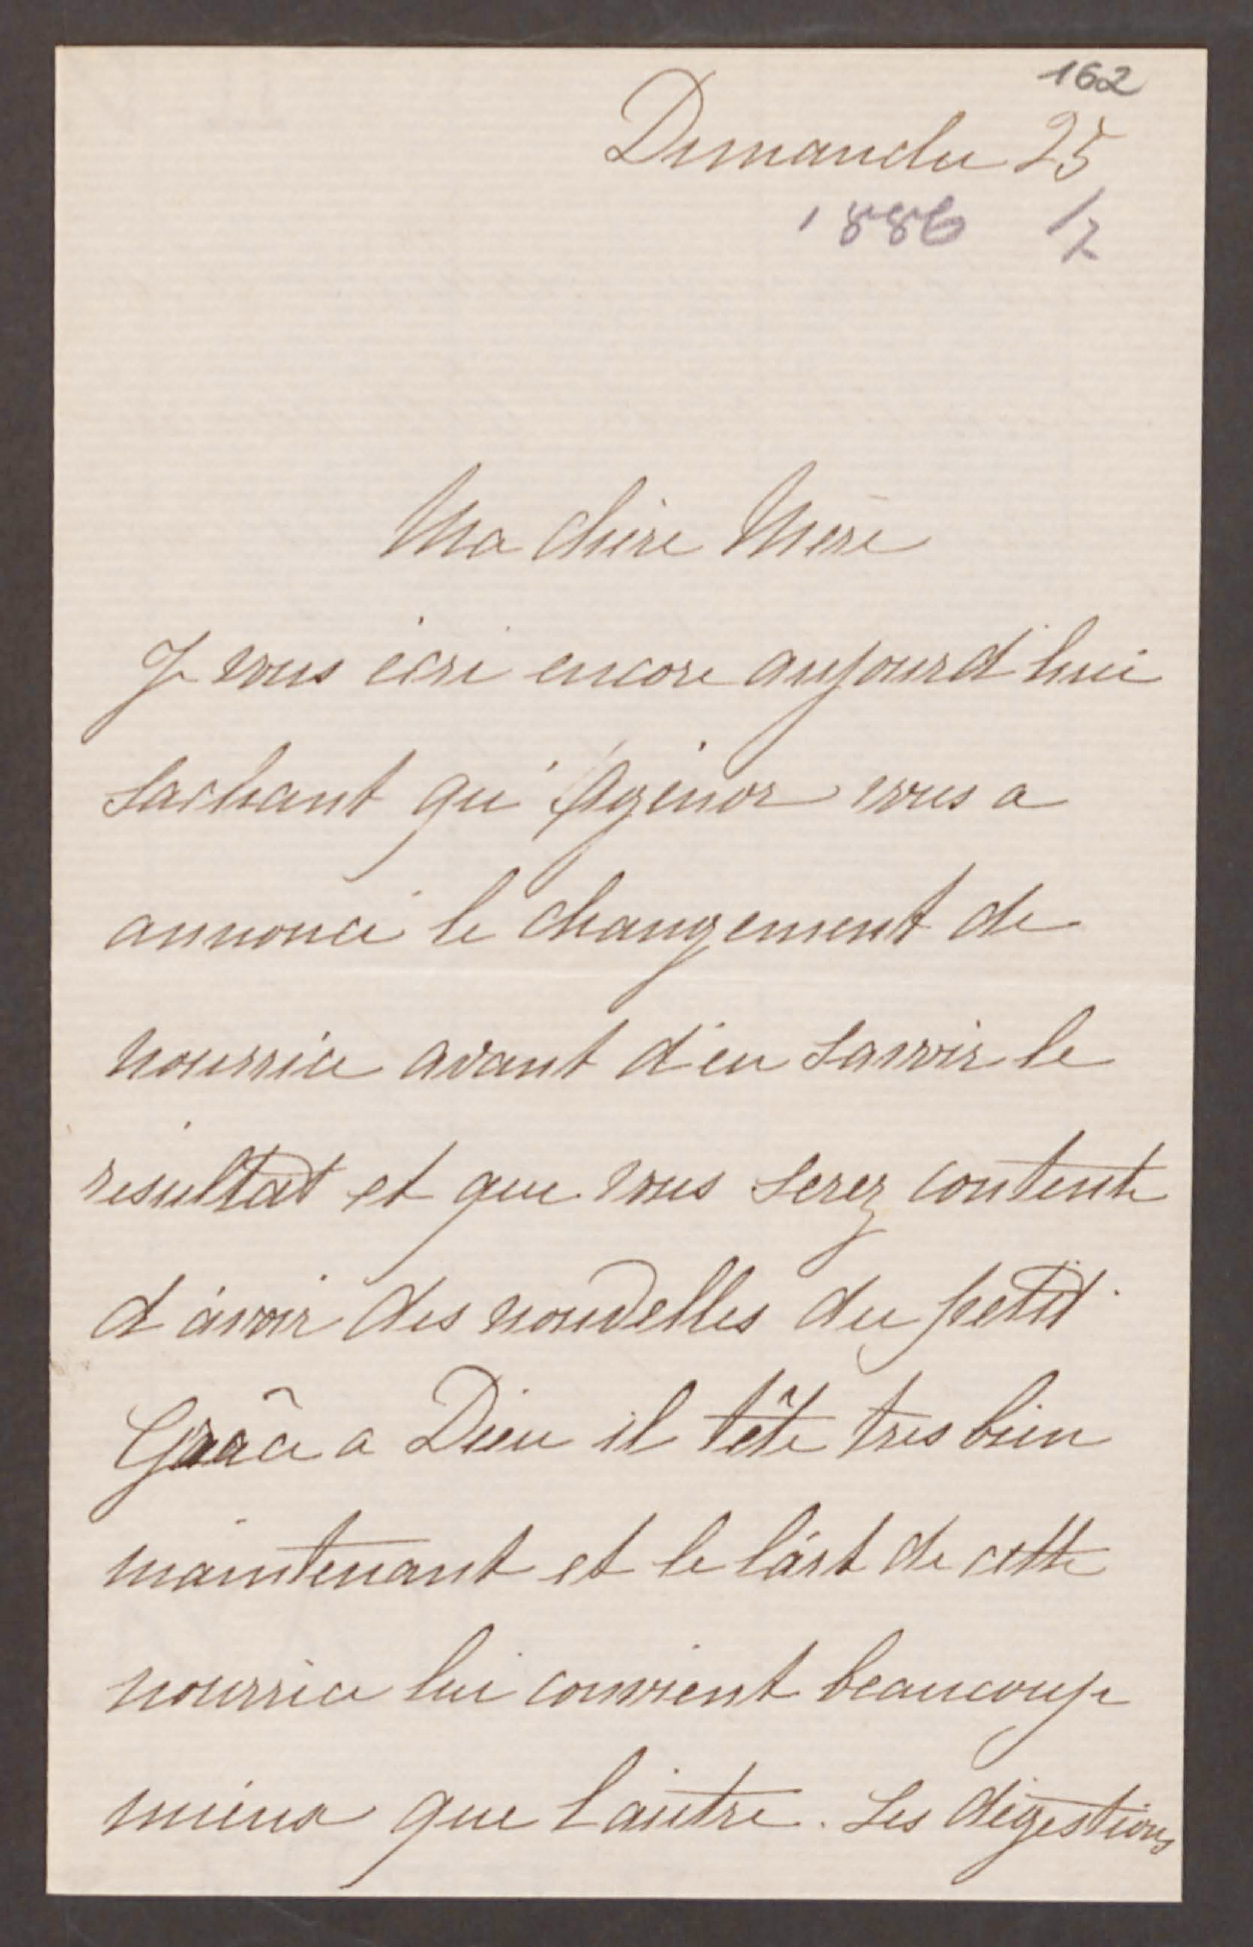 162
Dimanche 25
1886 /7
Ma chère Mère
Je vous écri encore aujourd'hui
sachant qu'Agénor vous a
annoncé le changement de
nourrice avant d'en savoir le
résultat et que vous serez contente
d'avoir des nouvelles du petit.
Grâce a Dieu il tête tres bien
maintenant et le lait de cette
nourrice lui convient beaucoup
mieux que l'autre. Les digestions